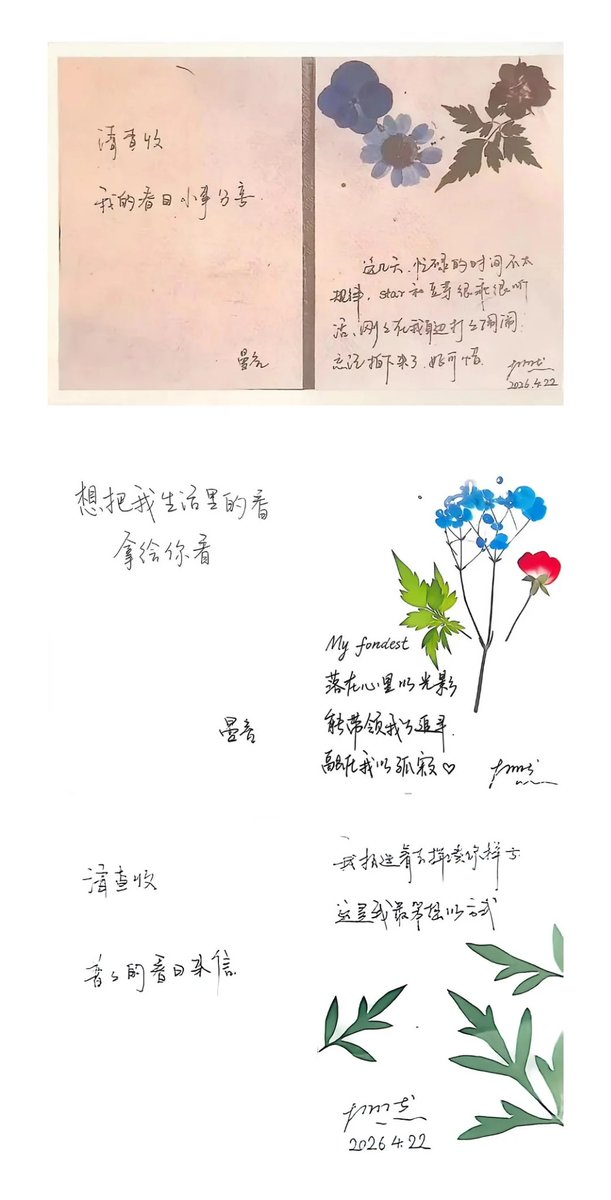 请查收
我的春日小事分享
曼音
这几天,忙碌的时间不太
规律,star和豆芽很乖很听
话、刚刚在我身边打打闹闹
忘记拍下来了,好可惜
2026.4.22
想把我生活里的春
拿给你看
曼音
My fondest
落在心里的光影
能带领我去追寻
融在我的孤寂♡
请查收
音音的春日来信
这是我最
方式
2026.4.22